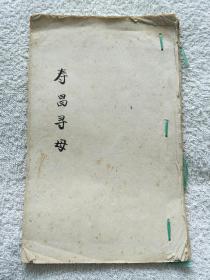 寿昌寻母